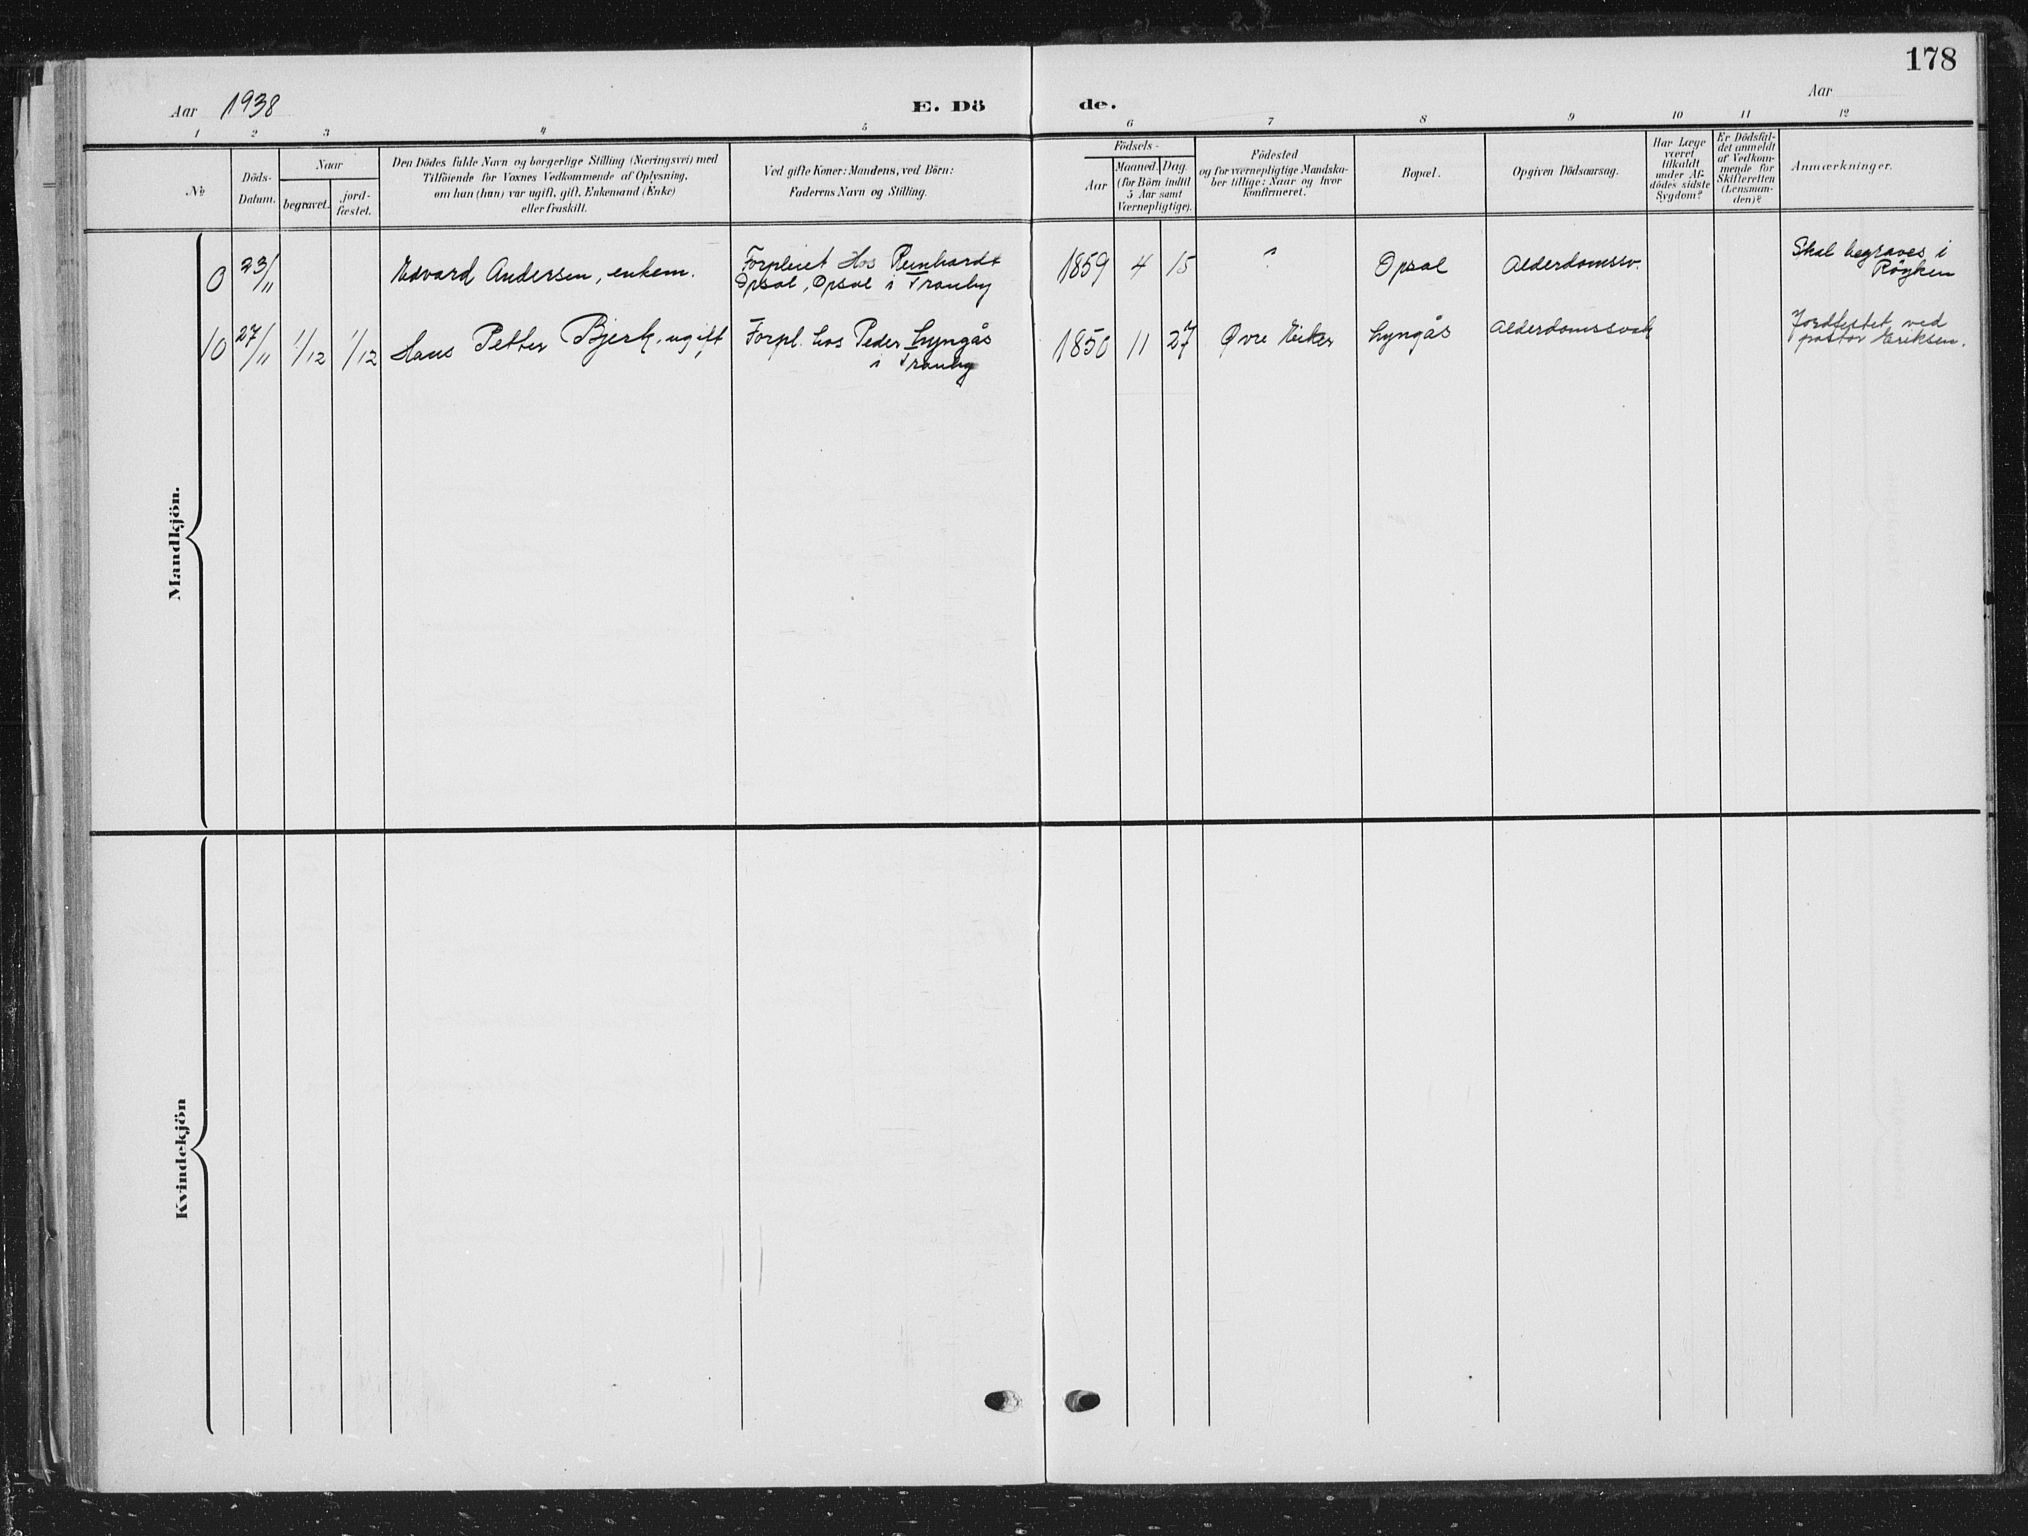 178
Aar 1938
E. Dö
de.
Aar
1 2 3 4 5 6 7 8 9 10 11 12
No
Döds-
Datum.
Naar
begravet.
jord-
fæstet.
Den Dödes fulde Navn og borgerlige Stilling (Næringsvei) med
Tilföiende for Voxnes Vedkommende af Oplysning,
om han (hun) var ugift, gift, Enkemand (Enke)
eller fraskilt.
Ved gifte Koner: Mandens, ved Börn:
Faderens Navn og Stilling.
Födsels-
Aar
Maaned. Dag.
(for Börn indtil
5 Aar samt
Værnepligtige).
Födested
og for værnepligtige Mandska-
ber tillige: Naar og hvor
konfirmeret.
Bopæl.
Opgiven Dödsaarsag.
Har Læge
været
tilkaldt
under Af-
dödes sidste
Sygdom?
Er Dödsfal-
det anmeldt
af Vedkom-
mende for
Skifteretten
(Lensman-
den)?
Anmærkninger.
Mandkjön.
0 23/11 Edvard Andersen, enkem. Forpleiet Hos Reinhardt 1859 4 15 ? Opsal Alderdomssv. Skal begraves i
Opsal, Opsal i Tranby Røyken
10 27/11 1/12 1/12 Hans Petter Bjerk, ugift Forpl. hos Peder Lyngås 1850 11 27 Øvre Eiker Lyngås Alderdomssvak Jordfestet ved
i Tranby pastor Eriksen.
Kvindekjön